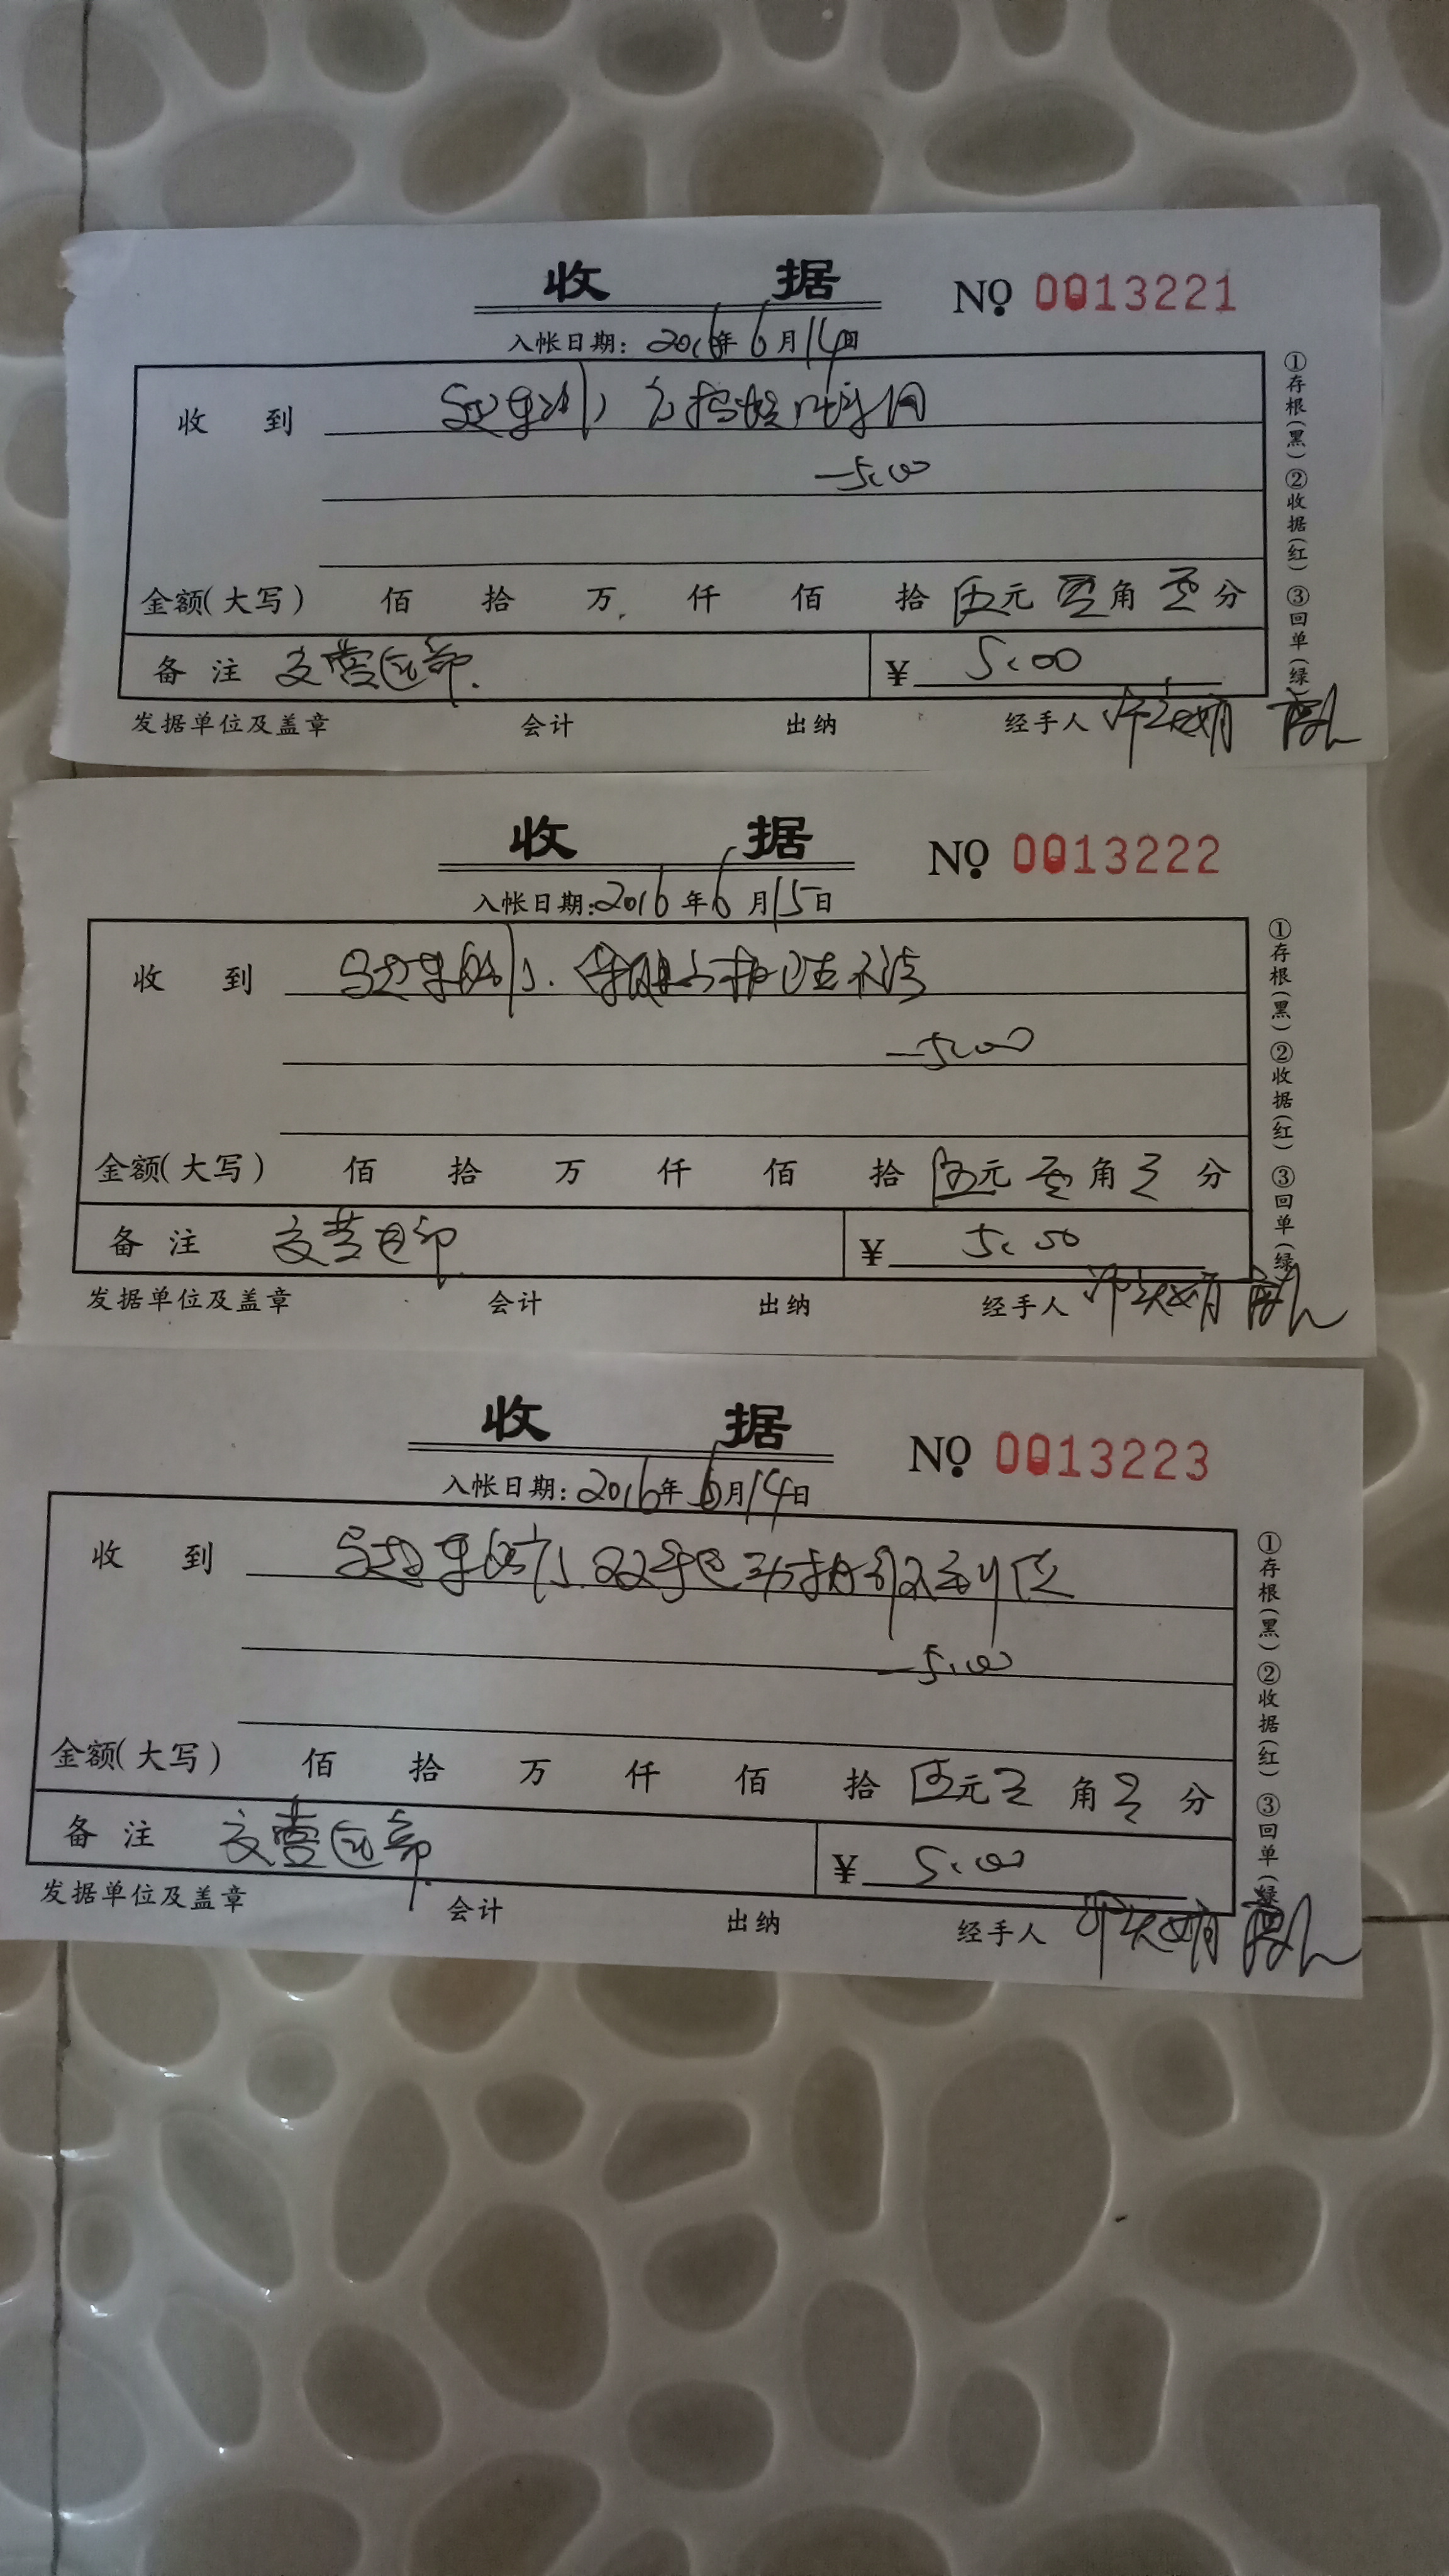 收 据 No 0013221
入帐日期: 2016年6月14日
收 到
—5.00
金额(大写) 佰 拾 万 仟 佰 拾 伍元 零角 零分
备 注 交营运部. ¥ 5.00
发据单位及盖章 会计 出纳 经手人
①存根(黑) ②收据(红) ③回单(绿
收 据 No 0013222
入帐日期: 2016年6月15日
收 到
—5.00
金额(大写) 佰 拾 万 仟 佰 拾 伍元 零角 零分
备 注 交营运部 ¥ 5.00
发据单位及盖章 会计 出纳 经手人
①存根(黑) ②收据(红) ③回单(绿
收 据 No 0013223
入帐日期: 2016年6月14日
收 到
—5.00
金额(大写) 佰 拾 万 仟 佰 拾 伍元 零角 零分
备 注 交营运部. ¥ 5.00
发据单位及盖章 会计 出纳 经手人
①存根(黑) ②收据(红) ③回单(绿